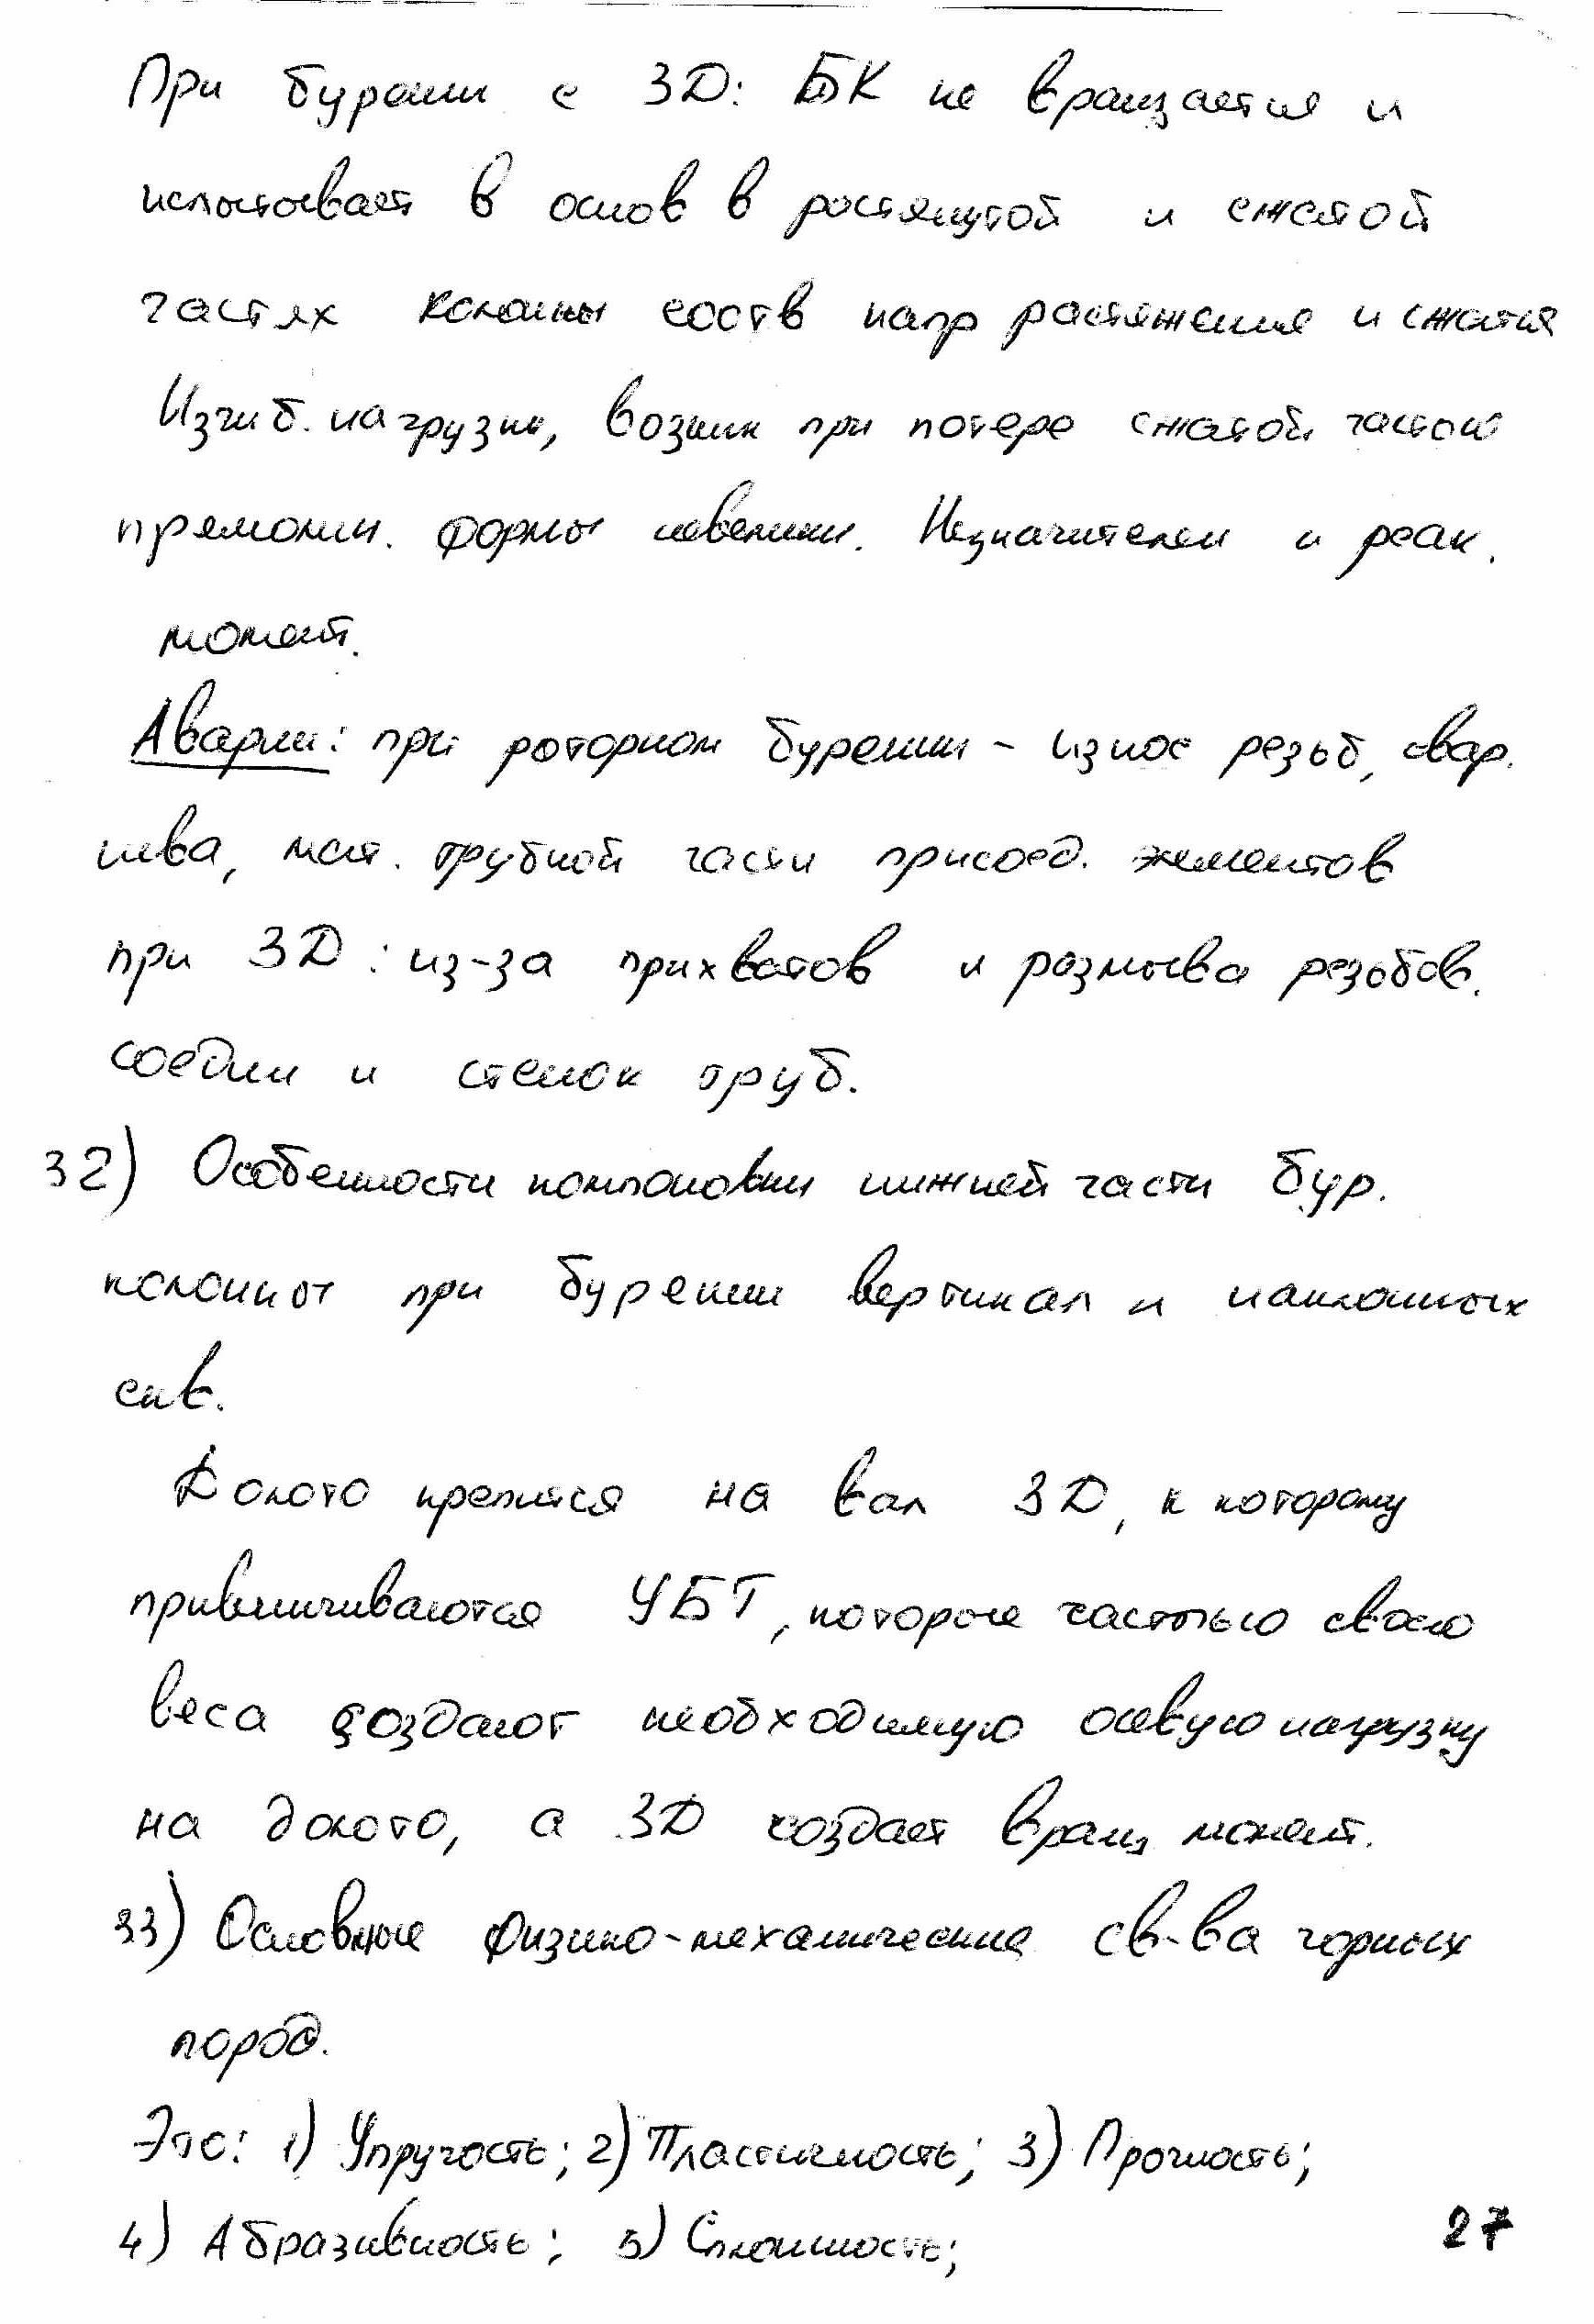 При бурении с ЗД: БК не вращается и
испытывает в основ в растянутой и сжатой
частях колонны соотв напр растяжения и сжатия
Изгиб. нагрузки, возник при потере сжатой частью
прямолин. формы невелики. Незначителен и реак.
момент.
Аварии: при роторном бурении - износ резьб, свар.
шва, мат. трубной части присоед. элементов
при ЗД: из-за прихватов и размыва резьбов.
соедин и стенок труб.
32) Особенности компоновки нижней части бур.
колонны при бурении вертикал и наклонных
скв.
Долото крепится на вал ЗД, к которому
привинчиваются УБТ, которые частью своего
веса создают необходимую осевую нагрузку
на долото, а ЗД создает вращ момент.
33) Основные физико-механические св-ва горных
пород.
Это: 1) Упругость; 2) Пластичность; 3) Прочность;
4) Абразивность; 5) Сплошность;
27